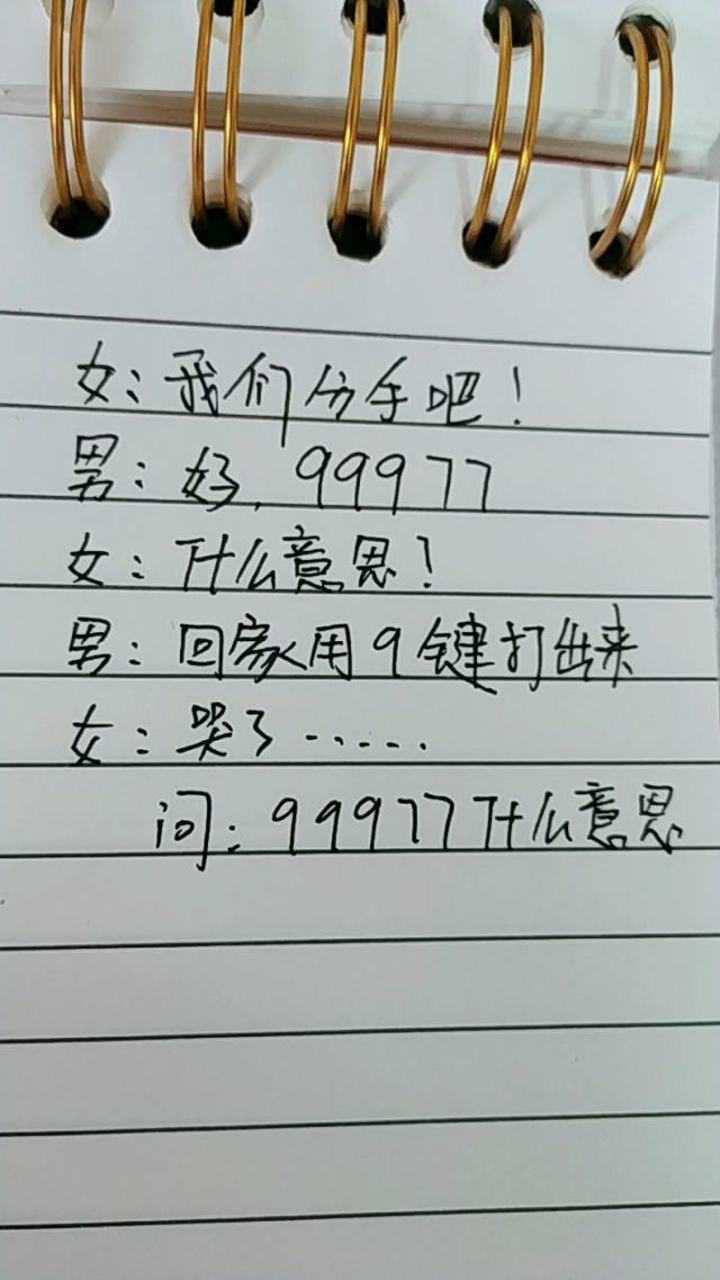 女：我们分手吧！
男：好，99977
女：什么意思？
男：回家用9键打出来
女：哭了……
问：99977什么意思